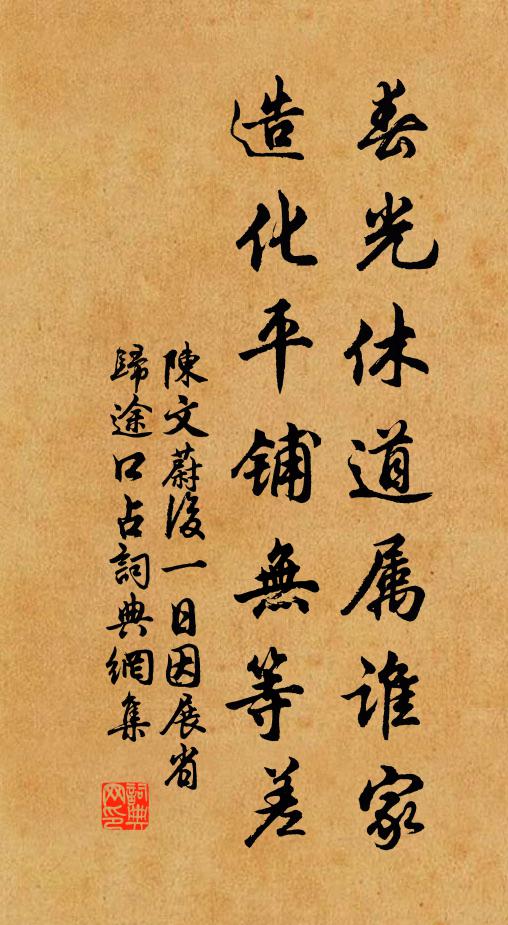 春光休道属谁家
造化平铺無等差
陳文蔚後一日因展省
歸途口占詞典網集
詞典网印